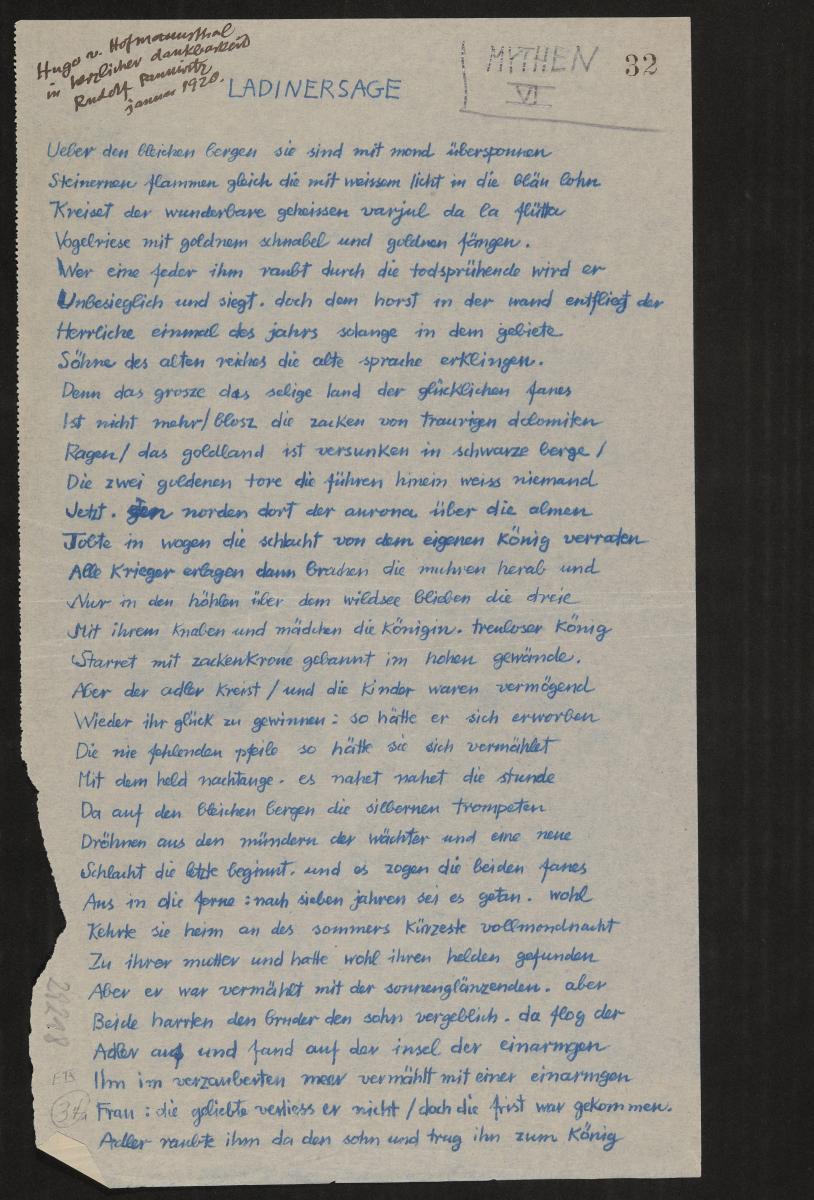 Hugo v. Hofmannsthal
in herzlicher dankbarkeit
Rudolf Pannwitz
januar 1920.
MYTHEN
VI
32
LADINERSAGE
Ueber den bleichen bergen sie sind mit mond übersponnen
Steinernen flammen gleich die mit weissem licht in die bläu lohn
Kreiset der wunderbare geheissen varjul da la flüta
Vogelriese mit goldnem schnabel und goldnen fängen.
Wer eine feder ihm raubt durch die todsprühende wird er
Unbesieglich und siegt. doch dem horst in der wand entfliegt der
Herrliche einmal des jahrs solange in dem gebiete
Söhne des alten reiches die alte sprache erklingen.
Denn das grosze das selige land der glücklichen fanes
Ist nicht mehr/ blosz die zacken von traurigen dolomiten
Ragen/ das goldland ist versunken in schwarze berge/
Die zwei goldenen tore die führen hinein weiss niemand
Jetzt. gen norden dort der aurona über die almen
Tobte in wogen die schlacht von dem eigenen König verraten
Alle Krieger erlagen dann brachen die muhren herab und
Nur in den höhlen über dem wildsee blieben die dreie
Mit ihrem Knaben und mädchen die Königin. treuloser König
Starret mit zackenkrone gebannt im hohen gewände.
Aber der adler kreist/ und die Kinder waren vermögend
Wieder ihr glück zu gewinnen: so hätte er sich erworben
Die nie fehlenden pfeile so hätte sie sich vermählet
Mit dem held nachtauge. es nahet nahet die stunde
Da auf den bleichen bergen die silbernen trompeten
Dröhnen aus den mündern der wächter und eine neue
Schlacht die letzte beginnt. und es zogen die beiden fanes
Aus in die ferne: nach sieben jahren sei es getan. wohl
Kehrte sie heim an des sommers Kürzeste vollmondnacht
Zu ihrer mutter und hatte wohl ihren helden gefunden
Aber er war vermählt mit der sonnenglänzenden. aber
Beide harrten den bruder den sohn vergeblich. da flog der
Adler auf und fand auf der insel der einarmgen
Ihn im verzauberten meer vermählt mit einer einarmgen
Frau: die geliebte verliess er nicht/ doch die frist war gekommen.
Adler raubte ihm da den sohn und trug ihn zum König